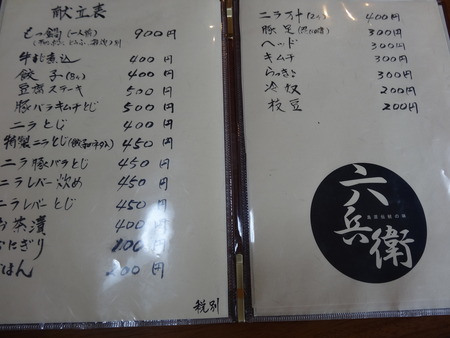 献立表
もつ鍋(一人前) 900円
牛もつ煮込 400円
餃子(8ヶ) 400円
豆腐ステーキ 500円
豚バラキムチとじ 500円
ニラとじ 400円
特製ニラとじ 450円
ニラ豚バラとじ 450円
ニラレバー炒め 450円
ニラレバーとじ 450円
お茶漬 400円
おにぎり 200円
ごはん 200円
税別
400円
豚足 300円
ヘッド 300円
キムチ 300円
らっきょ 300円
冷奴 200円
枝豆 200円
六兵衛